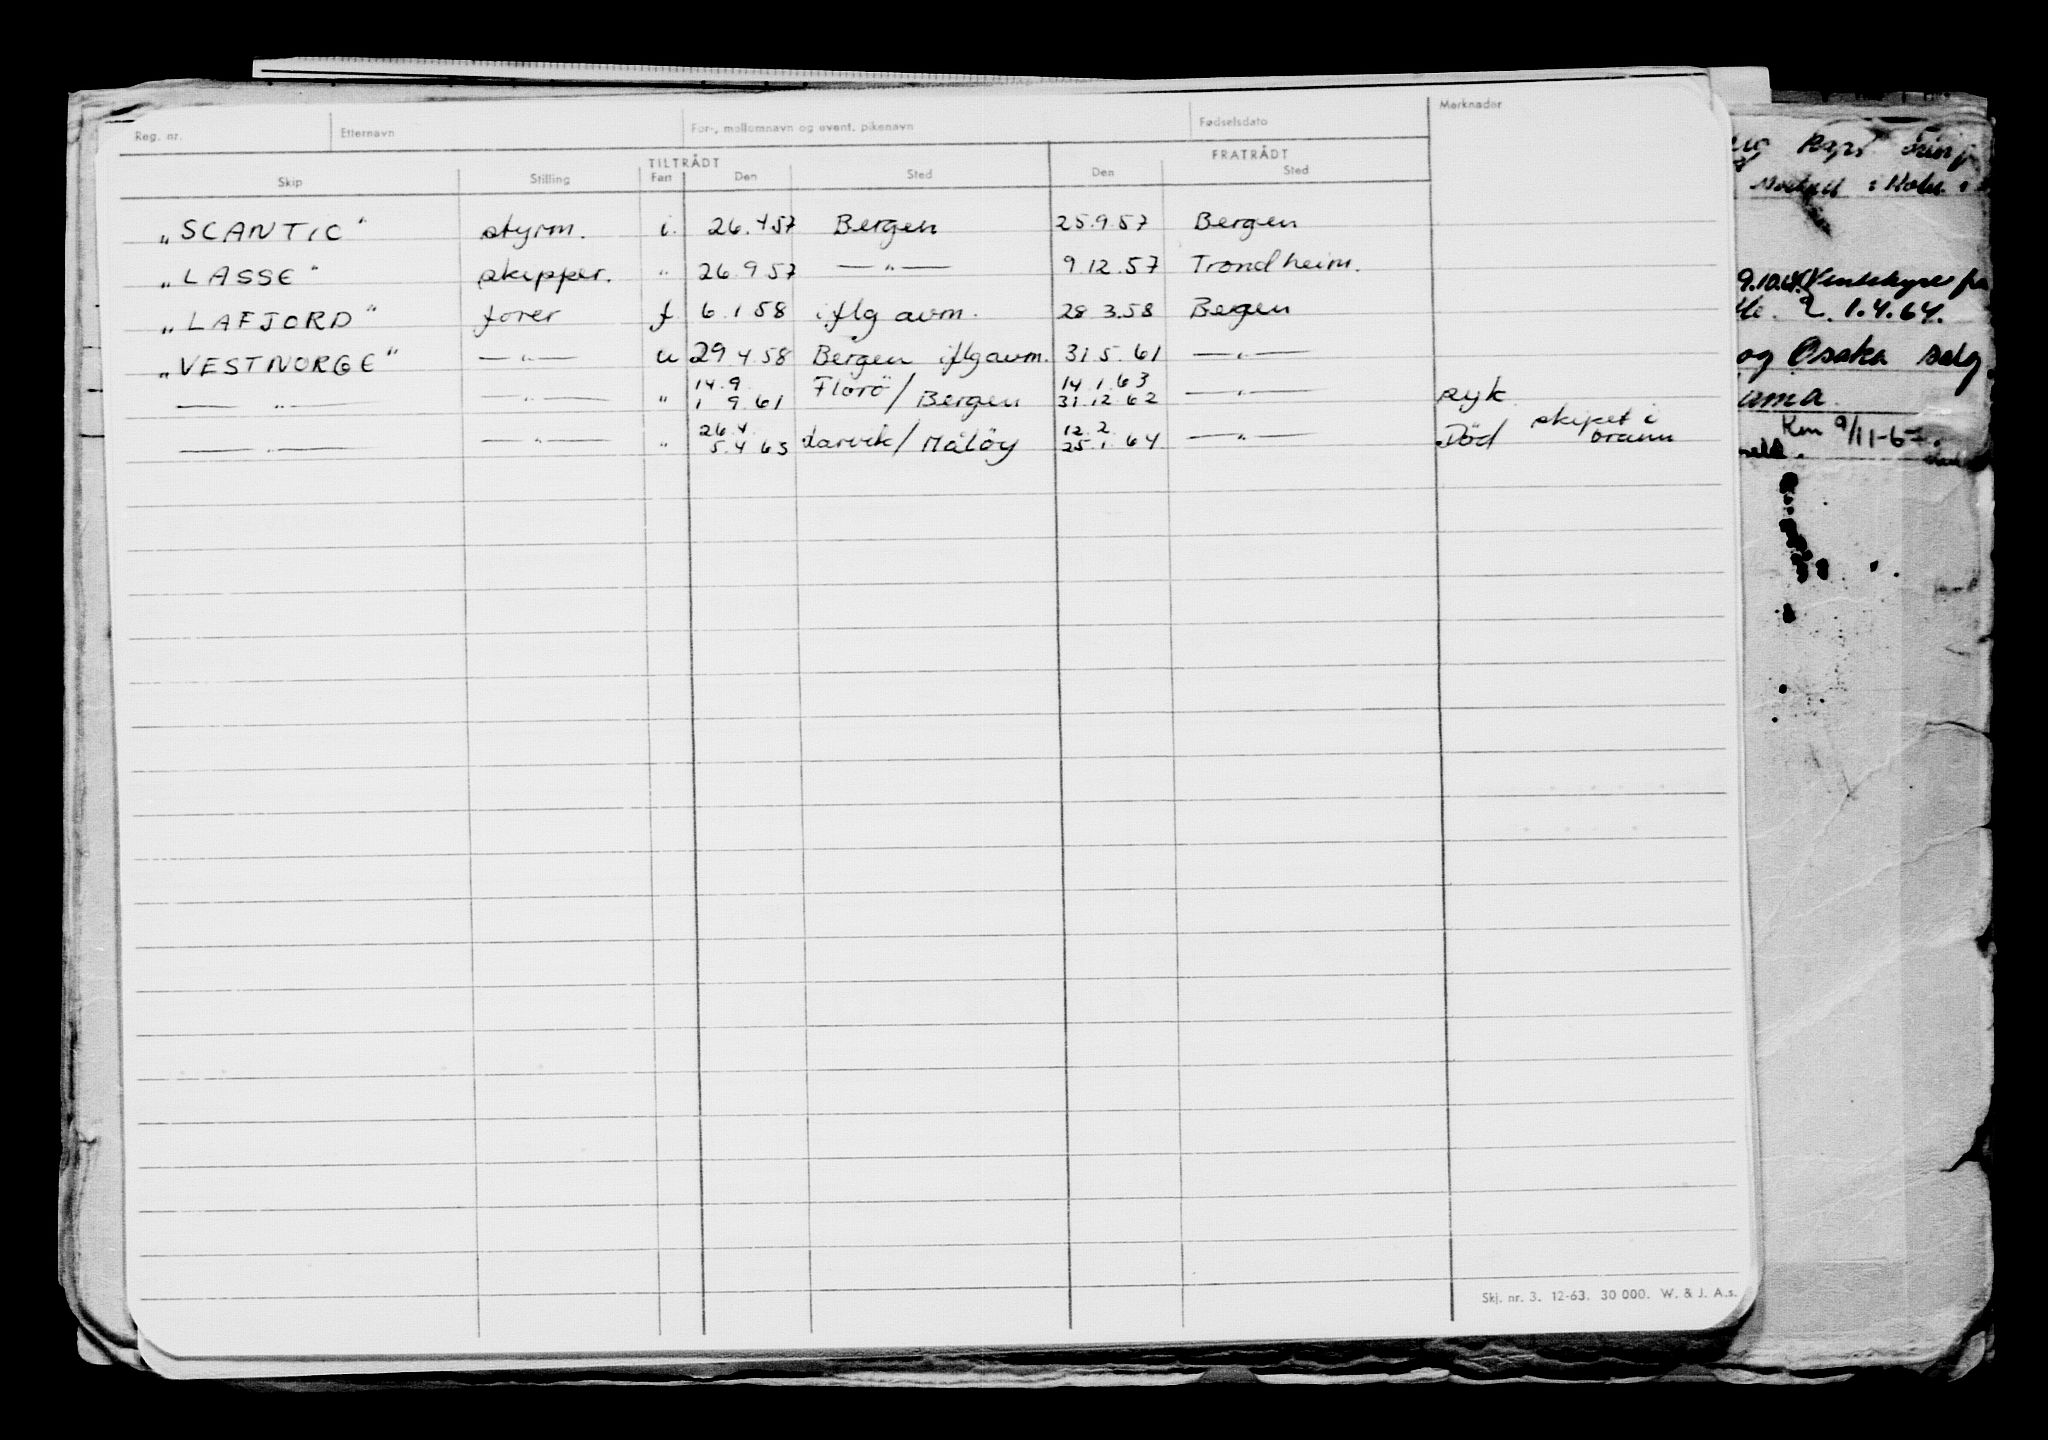 Reg. nr. Etternavn For-, mellomnavn og event. pikenavn Fødselsdato Merknader
TILTRÅDT FRATRÅDT
Skip Stilling Fart Den Sted Den Sted
„SCANTIC" styrm. i. 26.4.57 Bergen 25.9.57 Bergen
„LASSE" skipper. " 26.9.57 — " — 9.12.57 Trondheim.
„LAFJORD" fører f 6.1.58 iflg avm. 28.3.58 Bergen
„VESTNORGE" — " — u 29.4.58 Bergen iflg avm. 31.5.61 — " —
14.9. Florö/ 14.1.63
— " — — " — " 1 9.61 Bergen 31.12.62 — " — syk
26.4. 12.2. skipet i
— " — — " — " 5.4.63 Larvik/Målöy 25.1.64 — " — Död brann
Skj. nr. 3. 12-63. 30 000. W. & J. A.s.
9.10.
1.4.64.
og Osaka
9/11-67.